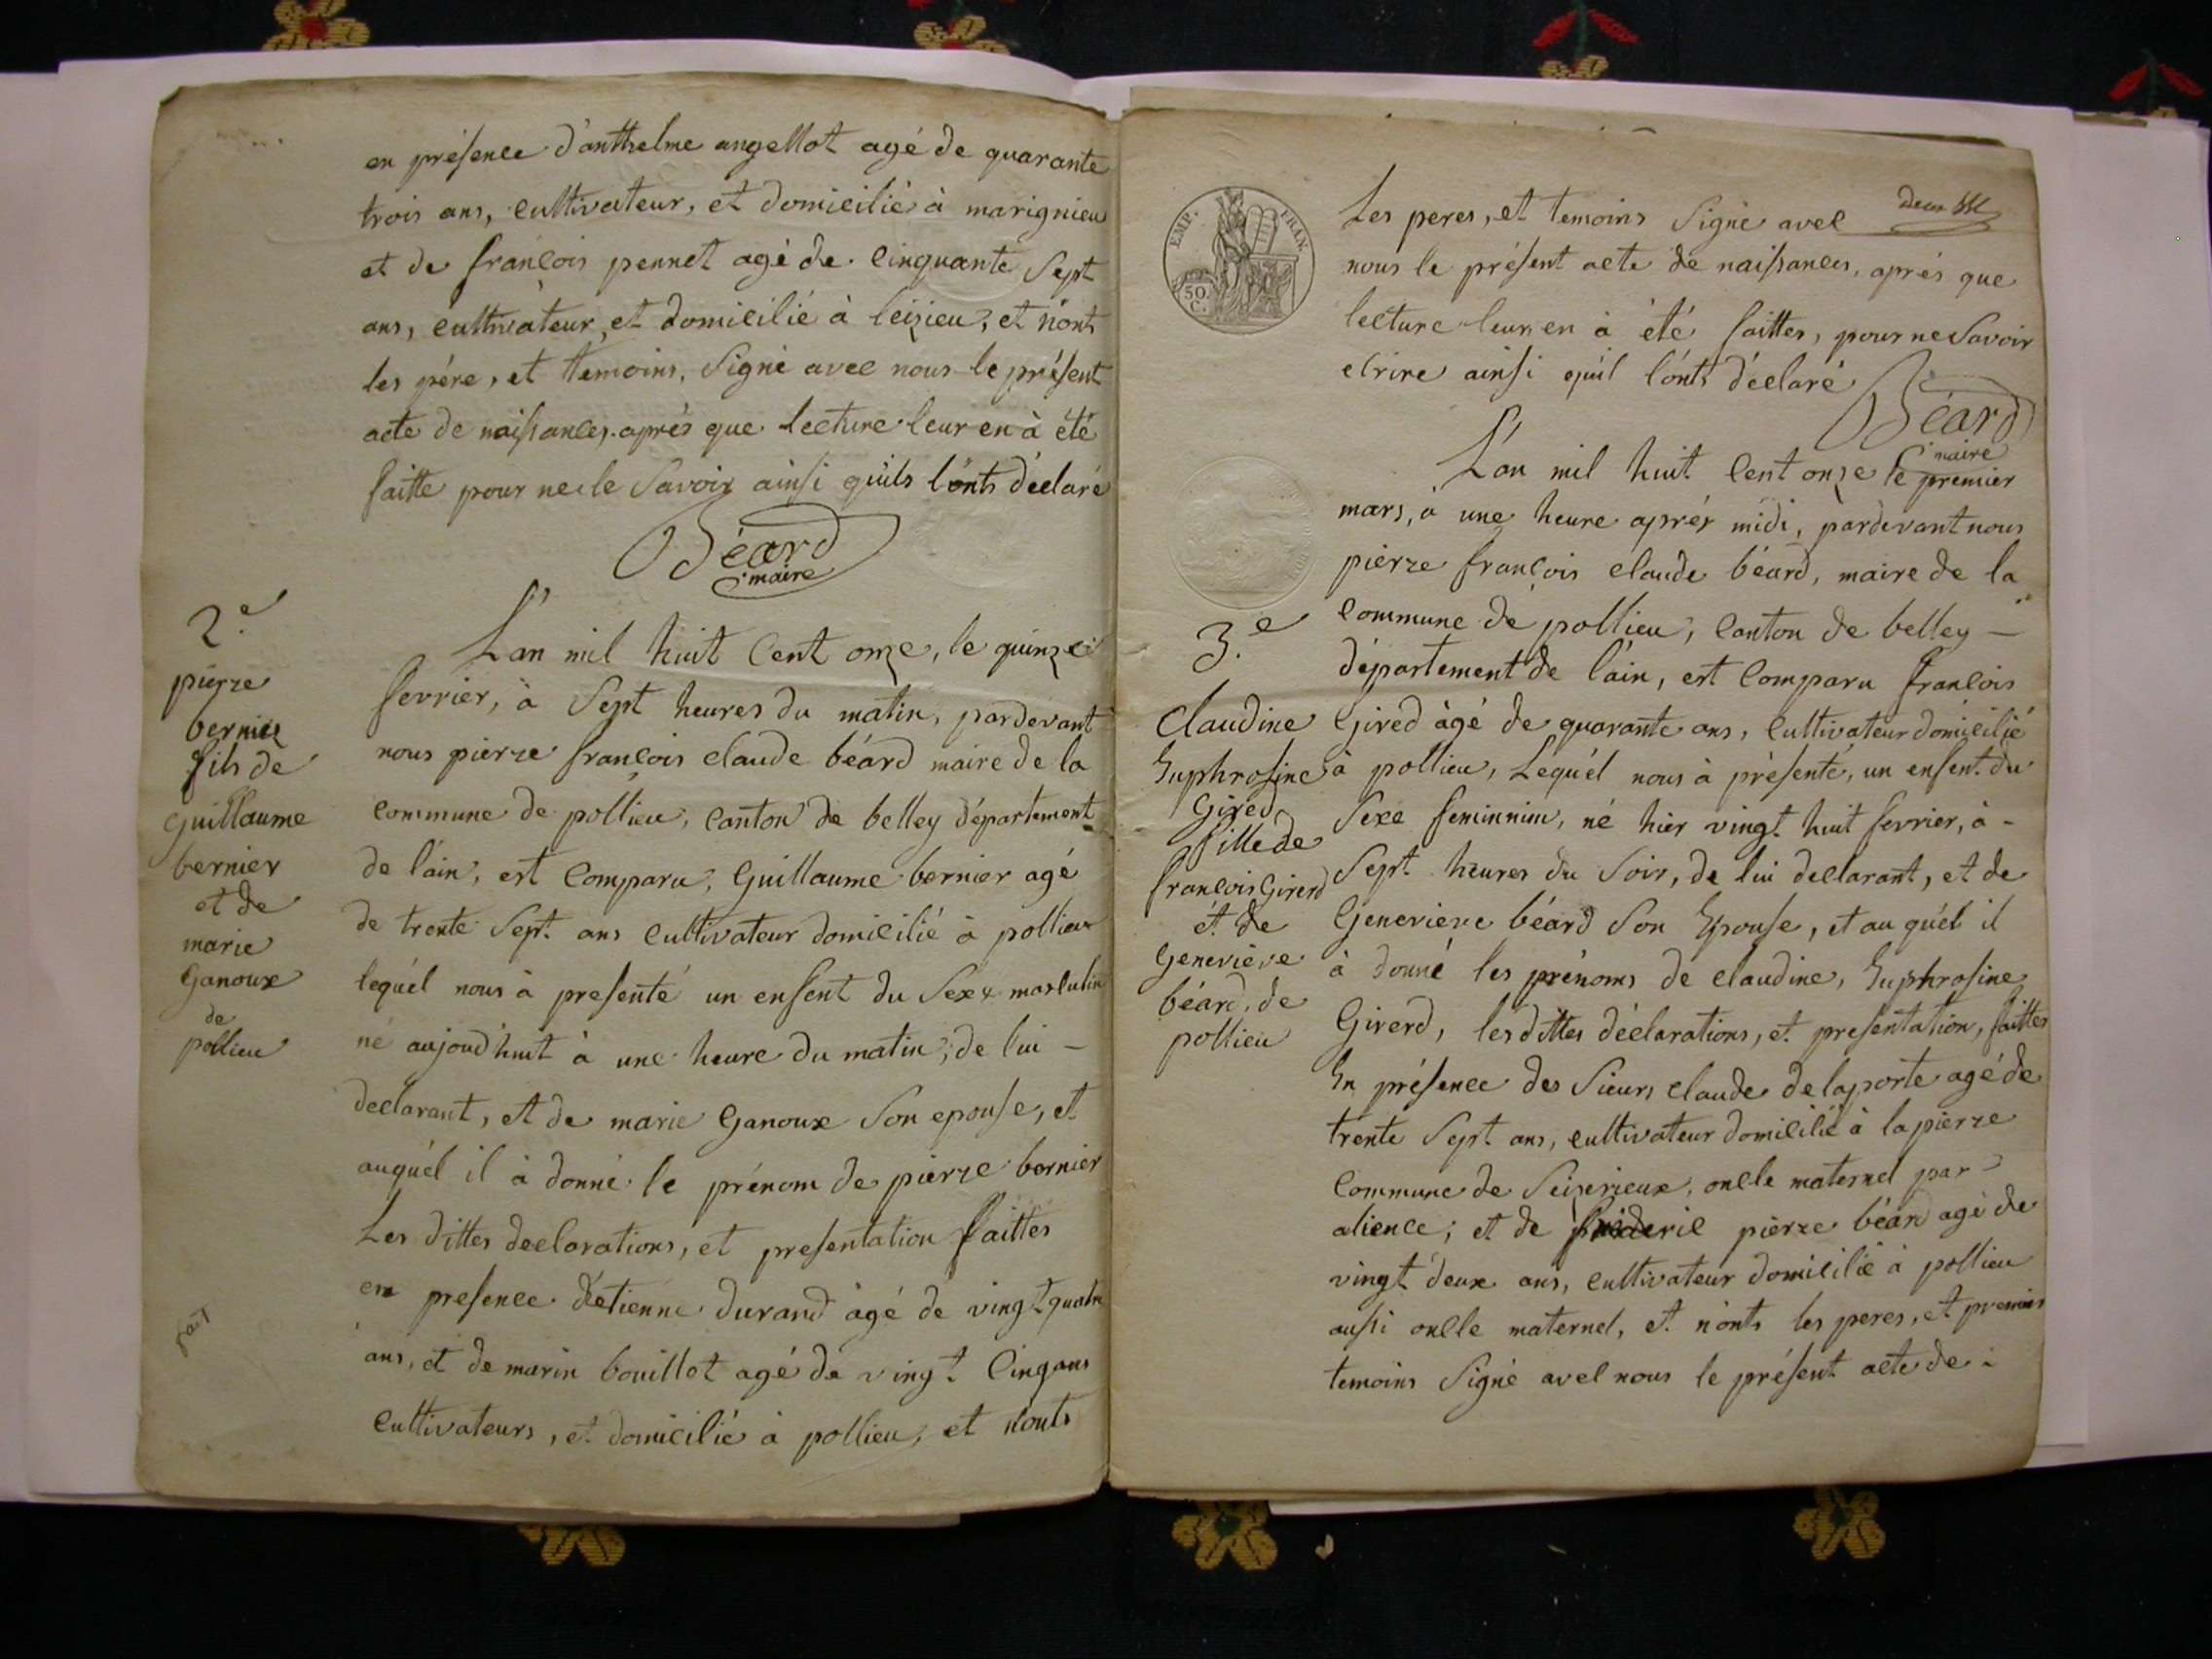 en présence d'anthelme angellot agé de quarante
trois ans, cultivateur, et domicilié à marignieu
et de françois pennet agé de cinquante sept
ans, cultivateur, et domicilié à ceizieu, et n'onts
les pére, et temoins, signé avec nous le présent
acte de naissances aprés que lecture leur en à été
faitte pour ne le savoir ainsi quils l'onts déclaré
Béard
maire
2.e
pierre
bernier
fils de
guillaume
bernier
et de
marie
ganoux
de
pollieu
fait
L'an mil huit cent onze, le quinze
fevrier, à sept heures du matin, pardevant
nous pierre françois claude béard maire de la
commune de pollieu, canton de belley département
de l'ain, est comparu, Guillaume bernier agé
de trente sept ans cultivateur domicilié à pollieu
lequél nous à presenté un enfent du sexe masculin
né aujoud'huit à une heure du matin, de lui -
declarant, et de marie ganoux son epouse, et
auquél il à donné le prénom de pierre bernier
Les dittes declarations, et presentation faittes
en presence d'étienne durand àgé de vingt quatre
ans, et de marin bouillet agé de vingt cinq ans
cultivateurs, et domicilié à pollieu, et n'onts
EMP. FRAN.
50.
C.
deux
Les peres, et temoins signé avec
nous le présent acte de naissances, aprés que
lecture leur en à été faittes, pour ne savoir
ecrire ainsi quil l'onts déclaré
Béard
maire
3.e
Claudine
Euphrosine
Gired
fille de
françois Girerd
et de
Geneviève
béard, de
pollieu
L'an mil huit cent onze le premier
mars, à une heure aprés midi, pardevant nous
pierre françois claude béard, maire de la
commune de pollieu, canton de belley -
département de l'ain, est comparu françois
Gired àgé de quarante ans, cultivateur domicilié
à pollieu, Lequél nous à présenté, un enfent du
sexe feminnin, né hier vingt huit fevrier, à -
sept heures du soir, de lui declarant, et de
Genevieve béard son Epouse, et au quél il
à donné les prénoms de claudine, Euphrosine
Girerd, les dittes déclarations, et presentation, faittes
En présence des sieurs claude delaporte agé de
trente sept ans, cultivateur domicilié à la pierre
commune de Seizerieux, oncle maternel par
alience; et de fréderic pierre béard agé de
vingt deux ans, cultivateur domicilié à pollieu
aussi oncle maternel, et n'onts les peres, et premier
temoins signé avec nous le présent acte de